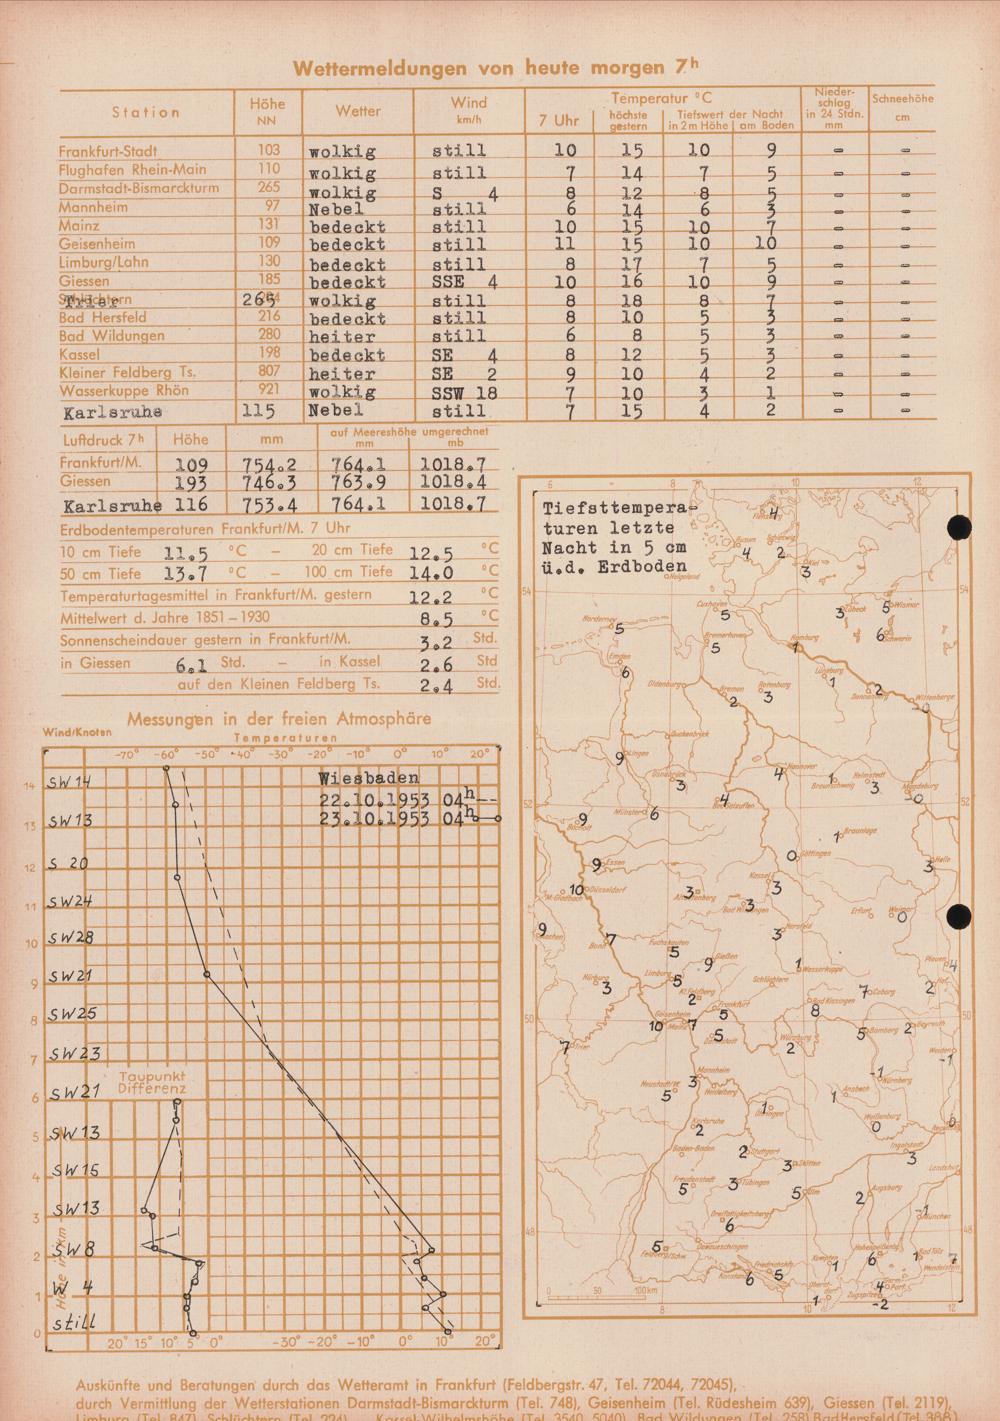 Wettermeldungen von heute morgen 7h
Station | Höhe NN | Wetter | Wind km/h | Temperatur °C | Niederschlag in 24 Stdn. mm | Schneehöhe cm
7 Uhr | höchste gestern | Tiefswert der Nacht in 2 m Höhe | am Boden
Frankfurt-Stadt 103 wolkig still 10 15 10 9 - -
Flughafen Rhein-Main 110 wolkig still 7 14 7 5 - -
Darmstadt-Bismarckturm 265 wolkig S 4 8 12 8 5 - -
Mannheim 97 Nebel still 6 14 6 3 - -
Mainz 131 bedeckt still 10 15 10 7 - -
Geisenheim 109 bedeckt still 11 15 10 10 - -
Limburg/Lahn 130 bedeckt still 8 17 7 5 - -
Giessen 185 bedeckt SSE 4 10 16 10 9 - -
Trier 265 wolkig still 8 18 8 7 - -
Bad Hersfeld 216 bedeckt still 8 10 5 3 - -
Bad Wildungen 280 heiter still 6 8 5 3 - -
Kassel 198 bedeckt SE 4 8 12 5 3 - -
Kleiner Feldberg Ts. 807 heiter SE 2 9 10 4 2 - -
Wasserkuppe Rhön 921 wolkig SSW 18 7 10 3 1 - -
Karlsruhe 115 Nebel still 7 15 4 2 - -
Luftdruck 7h | Höhe | mm | auf Meereshöhe umgerechnet mm | mb
Frankfurt/M. 109 754.2 764.1 1018.7
Giessen 193 746.3 763.9 1018.4
Karlsruhe 116 753.4 764.1 1018.7
Erdbodentemperaturen Frankfurt/M. 7 Uhr
10 cm Tiefe 11.5 °C – 20 cm Tiefe 12.5 °C
50 cm Tiefe 13.7 °C – 100 cm Tiefe 14.0 °C
Temperaturtagesmittel in Frankfurt/M. gestern 12.2 °C
Mittelwert d. Jahre 1851–1930 8.5 °C
Sonnenscheindauer gestern in Frankfurt/M. 3.2 Std.
in Giessen 6.1 Std. – in Kassel 2.6 Std
auf den Kleinen Feldberg Ts. 2.4 Std.
Messungen in der freien Atmosphäre
Wind/Knoten Temperaturen
-70° -60° -50° -40° -30° -20° -10° 0° 10° 20°
Wiesbaden
22.10.1953 04h
23.10.1953 04h
14 SW 14
13 SW 13
12 S 20
11 SW 24
10 SW 28
9 SW 21
8 SW 25
7 SW 23
Taupunkt
Differenz
6 SW 21
5 SW 13
4 SW 15
3 SW 13
2 SW 8
1 W 4
0 still
Höhe in km
20° 15° 10° 5° 0° -30° -20° -10° 0° 10° 20°
Tiefsttempera-
turen letzte
Nacht in 5 cm
ü.d. Erdboden
6 8 10 12
54
52
50
48
Flensburg 4
Husum 4
2
Kiel 3
Helgoland
Cuxhaven 5
Lübeck 3
Wismar 5
Schwerin 6
Norderney 5
Bremerhaven 5
Hamburg 1
Emden 6
Oldenburg
Bremen 2
Rotenburg 3
Lüneburg 1
Dannenberg 2
Wittenberge -0
Quackenbrück
Lingen 9
Osnabrück 3
Hannover 4
Braunschweig 1
Helmstedt 3
Magdeburg -0
Münster 6
4
Bocholt 9
Braunlage 1
Essen 9
Göttingen 0
Halle 3
M-Gladbach 10 Düsseldorf
Kassel 3
3
Bad Wildungen 3
Erfurt
Weimar 0
Aachen 9
Bonn 7
Hersfeld 3
5
Giessen 9
Wasserkuppe 1
Plauen
4
Hof 2
Nürburg 3
Limburg 5
Schlüchtern
Kl.Feldberg 2
Frankfurt 5
Bad Kissingen 8
Coburg 7
Geisenheim 10
Mainz 7
Darmstadt 5
Würzburg 2
Bamberg 5
Bayreuth 2
Trier 7
Weiden -1
Mannheim 3
Heidelberg
5
Nürnberg -1
Ansbach 1
Öhringen 1
Weißenburg 0
0
Karlsruhe 2
Ingolstadt 3
Baden-Baden
Stuttgart 2
3
Landshut
Freudenstadt 5
Tübingen 3
Ulm 5
Augsburg 2
6
München -1
Feldberg/Schw. 5
Donaueschingen
Konstanz 6
Friedrichshf. 5
Kempten 1
Hohenpeißenbg. 2
Bad Tölz 1
Wendelstein 7
Oberstdorf 1
4
Zugspitze -2
0 50 100 km
8 10 12
Auskünfte und Beratungen durch das Wetteramt in Frankfurt (Feldbergstr. 47, Tel. 72044, 72045),
durch Vermittlung der Wetterstationen Darmstadt-Bismarckturm (Tel. 748), Geisenheim (Tel. Rüdesheim 639), Giessen (Tel. 2119),
Limburg (Tel. 847), Schlüchtern (Tel. 224), Kassel-Wilhelmshöhe (Tel. 3540, 5040), Bad Wildungen (Tel. 258)